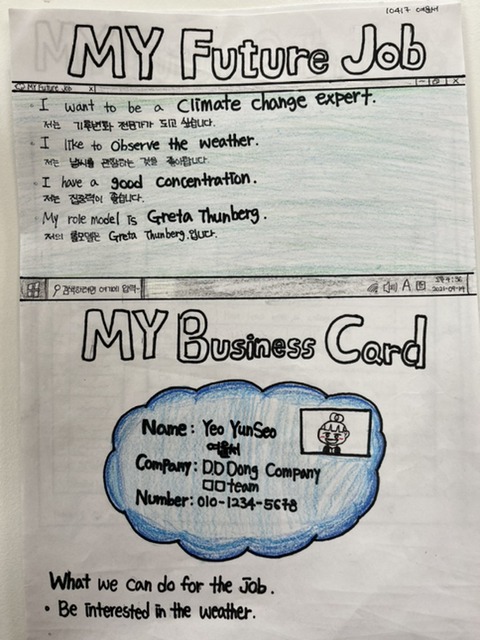 10417 여윤서
MY Future Job
My Future Job x
I want to be a Climate change expert.
저는 기후변화 전문가가 되고 싶습니다.
I like to observe the weather.
저는 날씨를 관찰하는 것을 좋아합니다.
I have a good concentration.
저는 집중력이 좋습니다.
My role model is Greta Thunberg.
저의 롤모델은 Greta Thunberg.입니다.
검색하려면 여기에 입력 A
MY Business Card
Name: Yeo YunSeo
여윤서
Company: D.D Dong Company
□□team
Number: 010-1234-5678
What we can do for the Job.
• Be interested in the weather.